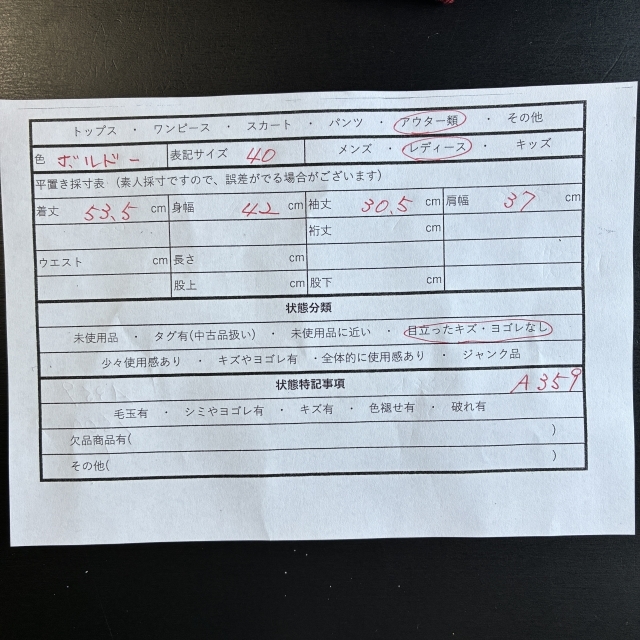 トップス ・ ワンピース ・ スカート ・ パンツ ・ アウター類 ・ その他
色 ボルドー 表記サイズ 40 メンズ ・ レディース ・ キッズ
平置き採寸表 (素人採寸ですので、誤差がでる場合がございます)
着丈 53.5 cm 身幅 42 cm 袖丈 30.5 cm 肩幅 37 cm
裄丈 cm
ウエスト cm 長さ cm
股上 cm 股下 cm
状態分類
未使用品 ・ タグ有(中古品扱い) ・ 未使用品に近い ・ 目立ったキズ・ヨゴレなし
少々使用感あり ・ キズやヨゴレ有 ・全体的に使用感あり ・ ジャンク品
状態特記事項 A359
毛玉有 ・ シミやヨゴレ有 ・ キズ有 ・ 色褪せ有 ・ 破れ有
欠品商品有( )
その他( )